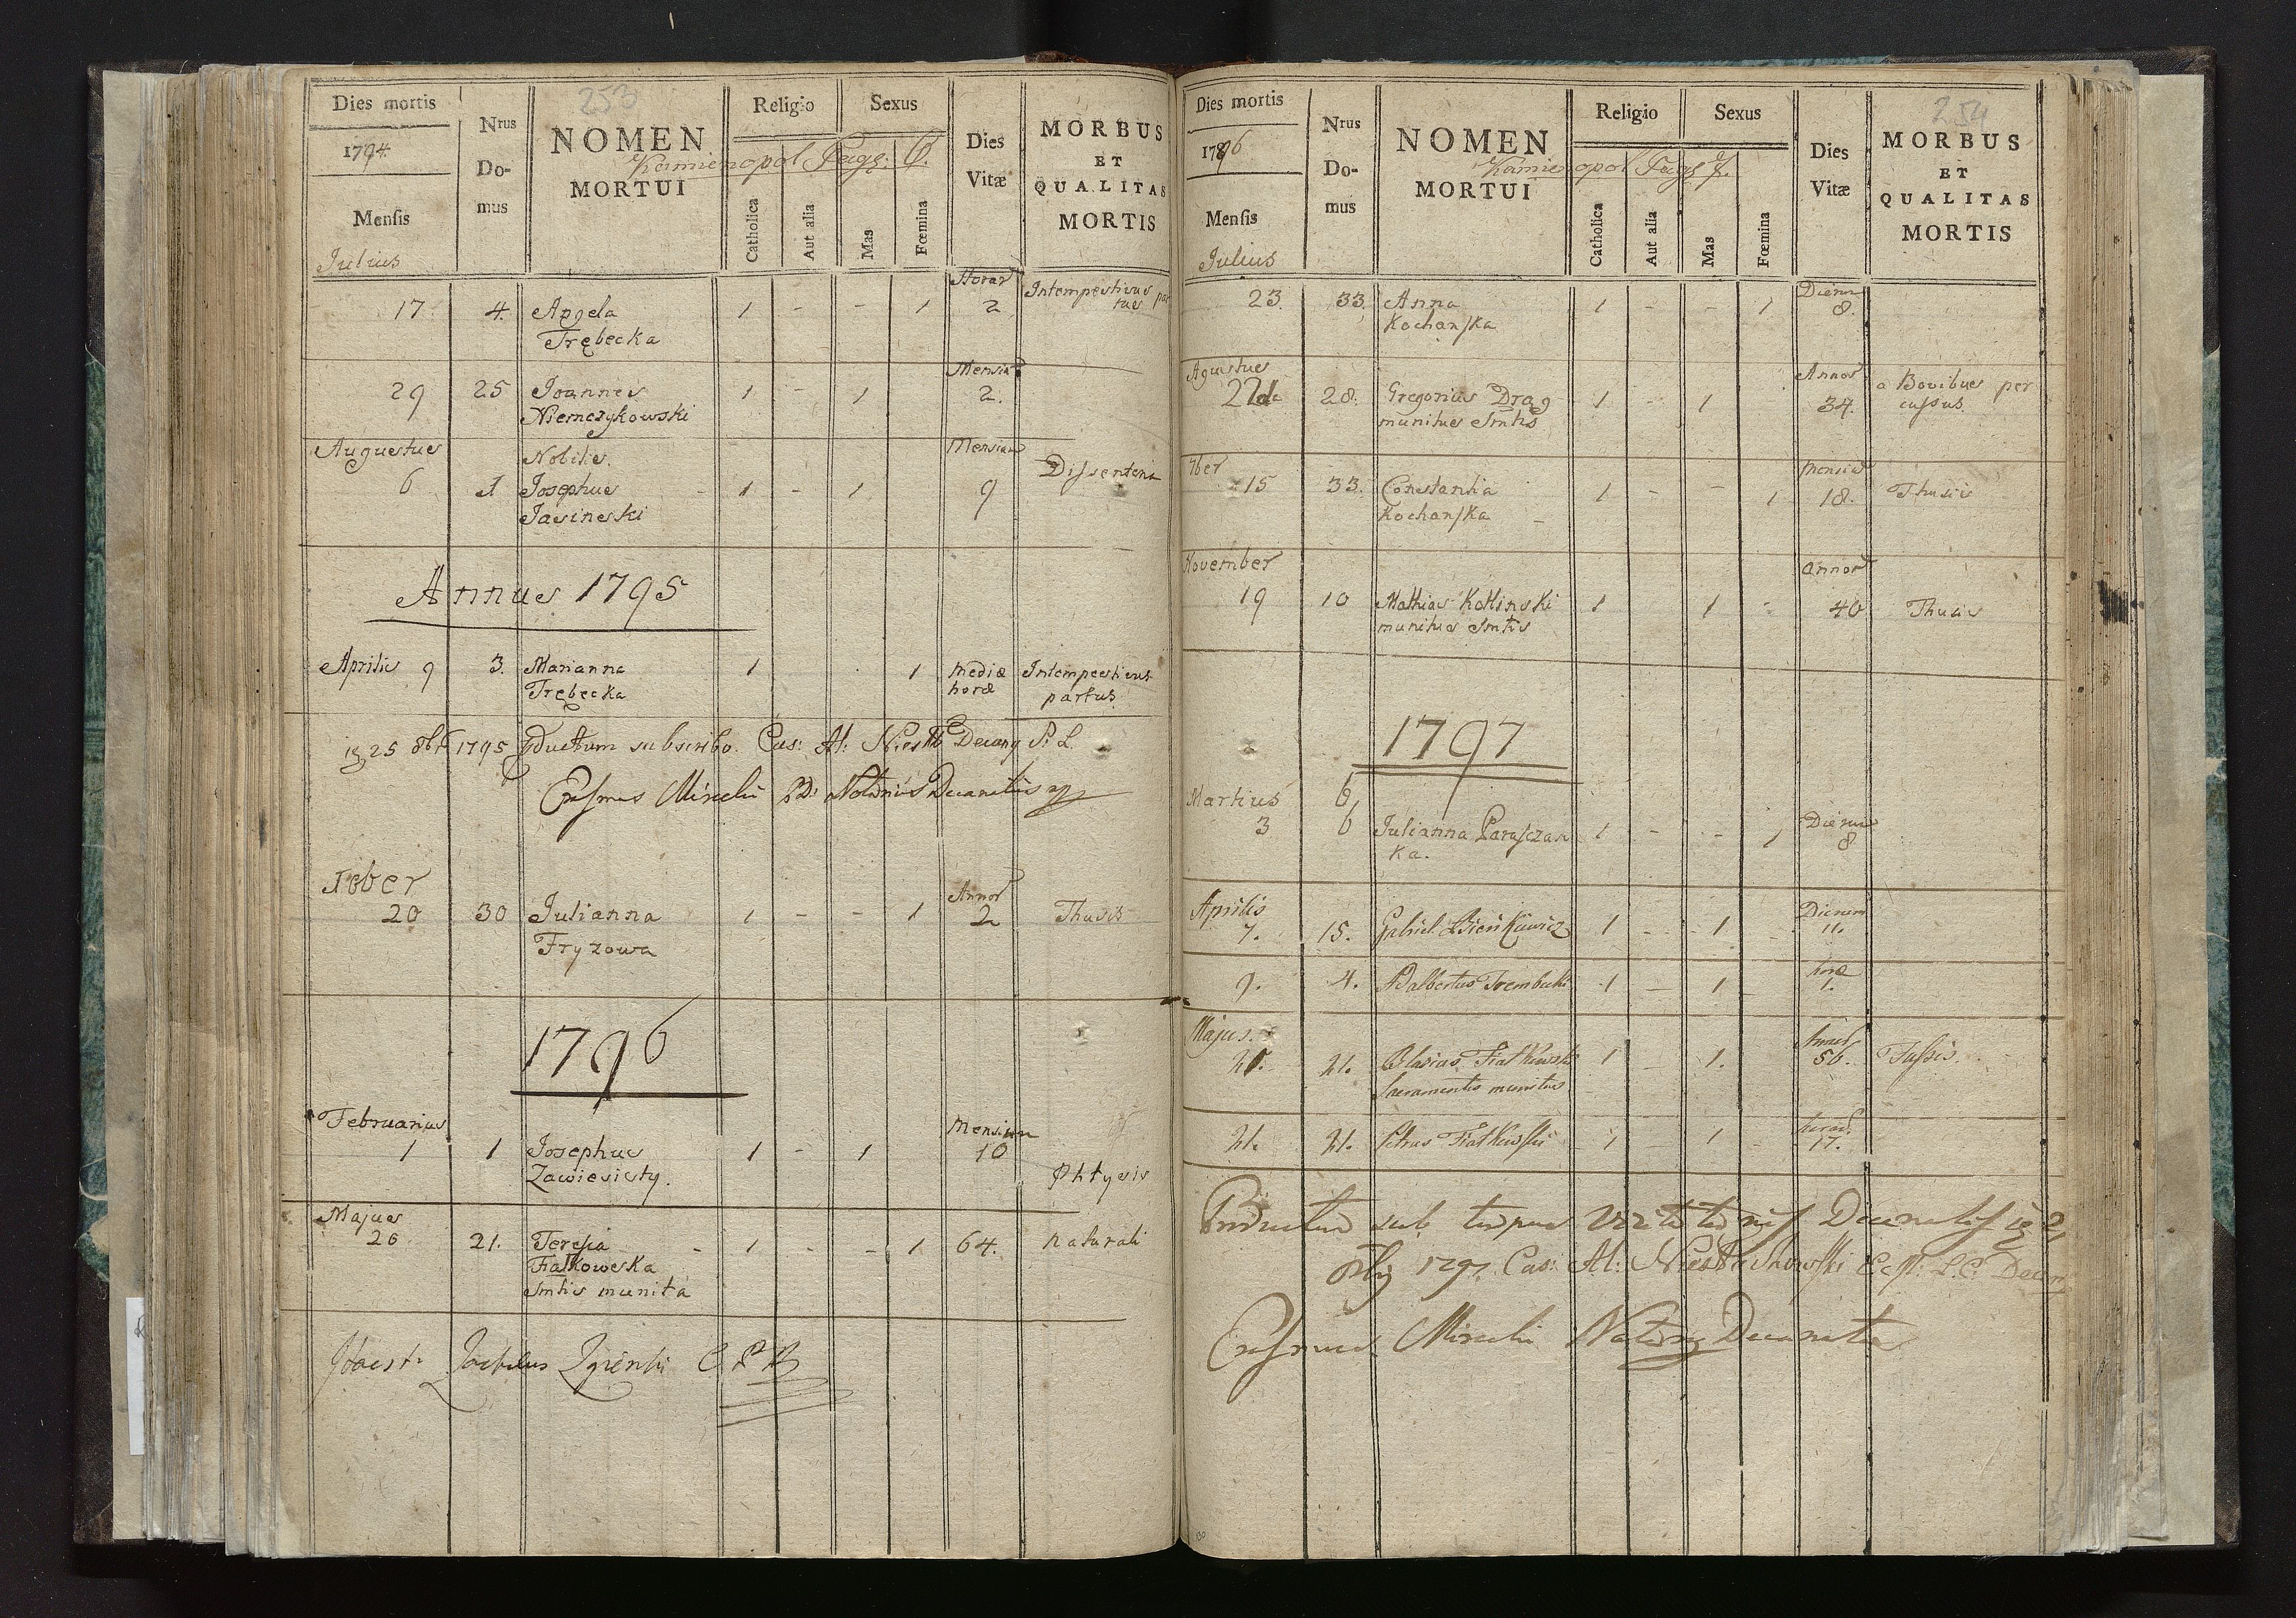 253
Dies mortis
1794.
Mensis
Julius
Nrus
Do-
mus
NOMEN
MORTUI
Kamienopol Pagg: 6.
Religio
Catholica
Aut alia
Sexus
Mas
Fœmina
Dies
Vitæ
MORBUS
ET
QUALITAS
MORTIS
17 4. Angela 1 - - 1 Horar 2 Intempestivus par
Trębecka tus
29 25 Joannes 1 - 1 Mensiu 2.
Niemczykowski
Augustus Nobilis. Mensium
6 1 Josephus - 1 - 1 9 Dissenteria
Jasinski
Annus 1795
Aprilis 9 3. Marianna 1 1 mediæ Intempestivus
Trębecka horæ partus
25 8br 1795 ductum subscribo. Cas: Al: Decang P. L.
Erasmus Miseli Notarius Decanatus
Xber
20 30 Julianna 1 - - 1 Annor 2 Thusis
Fryzowa
1796
Februarius Mensium
1 1 Josephus 1 - 1 10
Zawiesisty. Phtysis
Majus
26 21. Teresia - 1 - - 1 64. naturali
Fiałkowska
Smtis munita
254
Dies mortis
1796
Mensis
Julius
Nrus
Do-
mus
NOMEN
MORTUI
Kamienopol Pagg 7.
Religio
Catholica
Aut alia
Sexus
Mas
Fœmina
Dies
Vitæ
MORBUS
ET
QUALITAS
MORTIS
23 33. Anna 1 - - 1 Dierum 8.
Kochanska
Agustus
22da 28. Gregorius Drag 1 - 1 Annor 34. a Bovibus per
munitus Smtis cussus
7ber
15 33. Constantia 1 - - 1 mensiu 18. Thusis
Kochanska
November
19 10 Mathias Kotlinski 1 1 - annor 40 Thusis
munitus Smtis
1797
Martius 6
3 6 Julianna Paraszczas 1 - - 1 Dierum 8
ka.
Aprilis
7. 15. Gabriel Bieńkiewicz 1 - 1 - Dierum 11.
9. 4. Adalbertus Trembecki 1 - 1 - hora 1.
Majus.
21. 21. Blasius Fiałkowski 1 - 1. Annor 56. Tussis.
Sacramentis munitus
21. 21. Petrus Fiałkowski 1 - 1 - horar 17.
Productum sub tempus Decanalis
1797 Cas: Al: Niestuchowski
Erasmus Miseli Notarius Decanatus